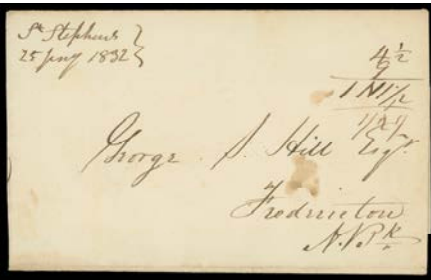 St Stephens
25 Jany 1832
4 1/2
9
1 N 1 1/2
George S. Hill Esqr
Fredericton
N.B.k